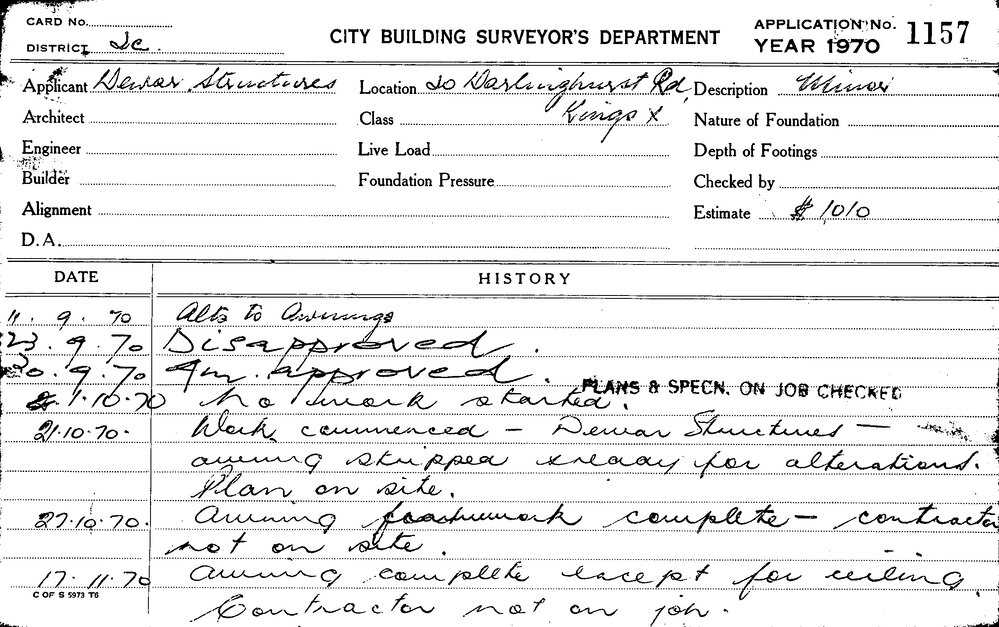 CARD No.
DISTRICT 2c
CITY BUILDING SURVEYOR'S DEPARTMENT
APPLICATION No. 1157
YEAR 1970
Applicant Dewar Structures
Location 20 Darlinghurst Rd,
Kings X
Description Minor
Architect
Class
Nature of Foundation
Engineer
Live Load
Depth of Footings
Builder
Foundation Pressure
Checked by
Alignment
Estimate $ 1010
D.A.
DATE HISTORY
11.9.70 Alts to Awnings
23.9.70 Disapproved.
30.9.70 Am. approved.
PLANS & SPECN. ON JOB CHECKED
1.10.70 No work started.
21.10.70. Work commenced — Dewar Structures —
awning stripped & ready for alterations.
Plan on site.
27.10.70. Awning complete — contractor
not on site.
17.11.70 Awning complete except for ceiling.
C OF S 5973 T6
Contractor not on job.